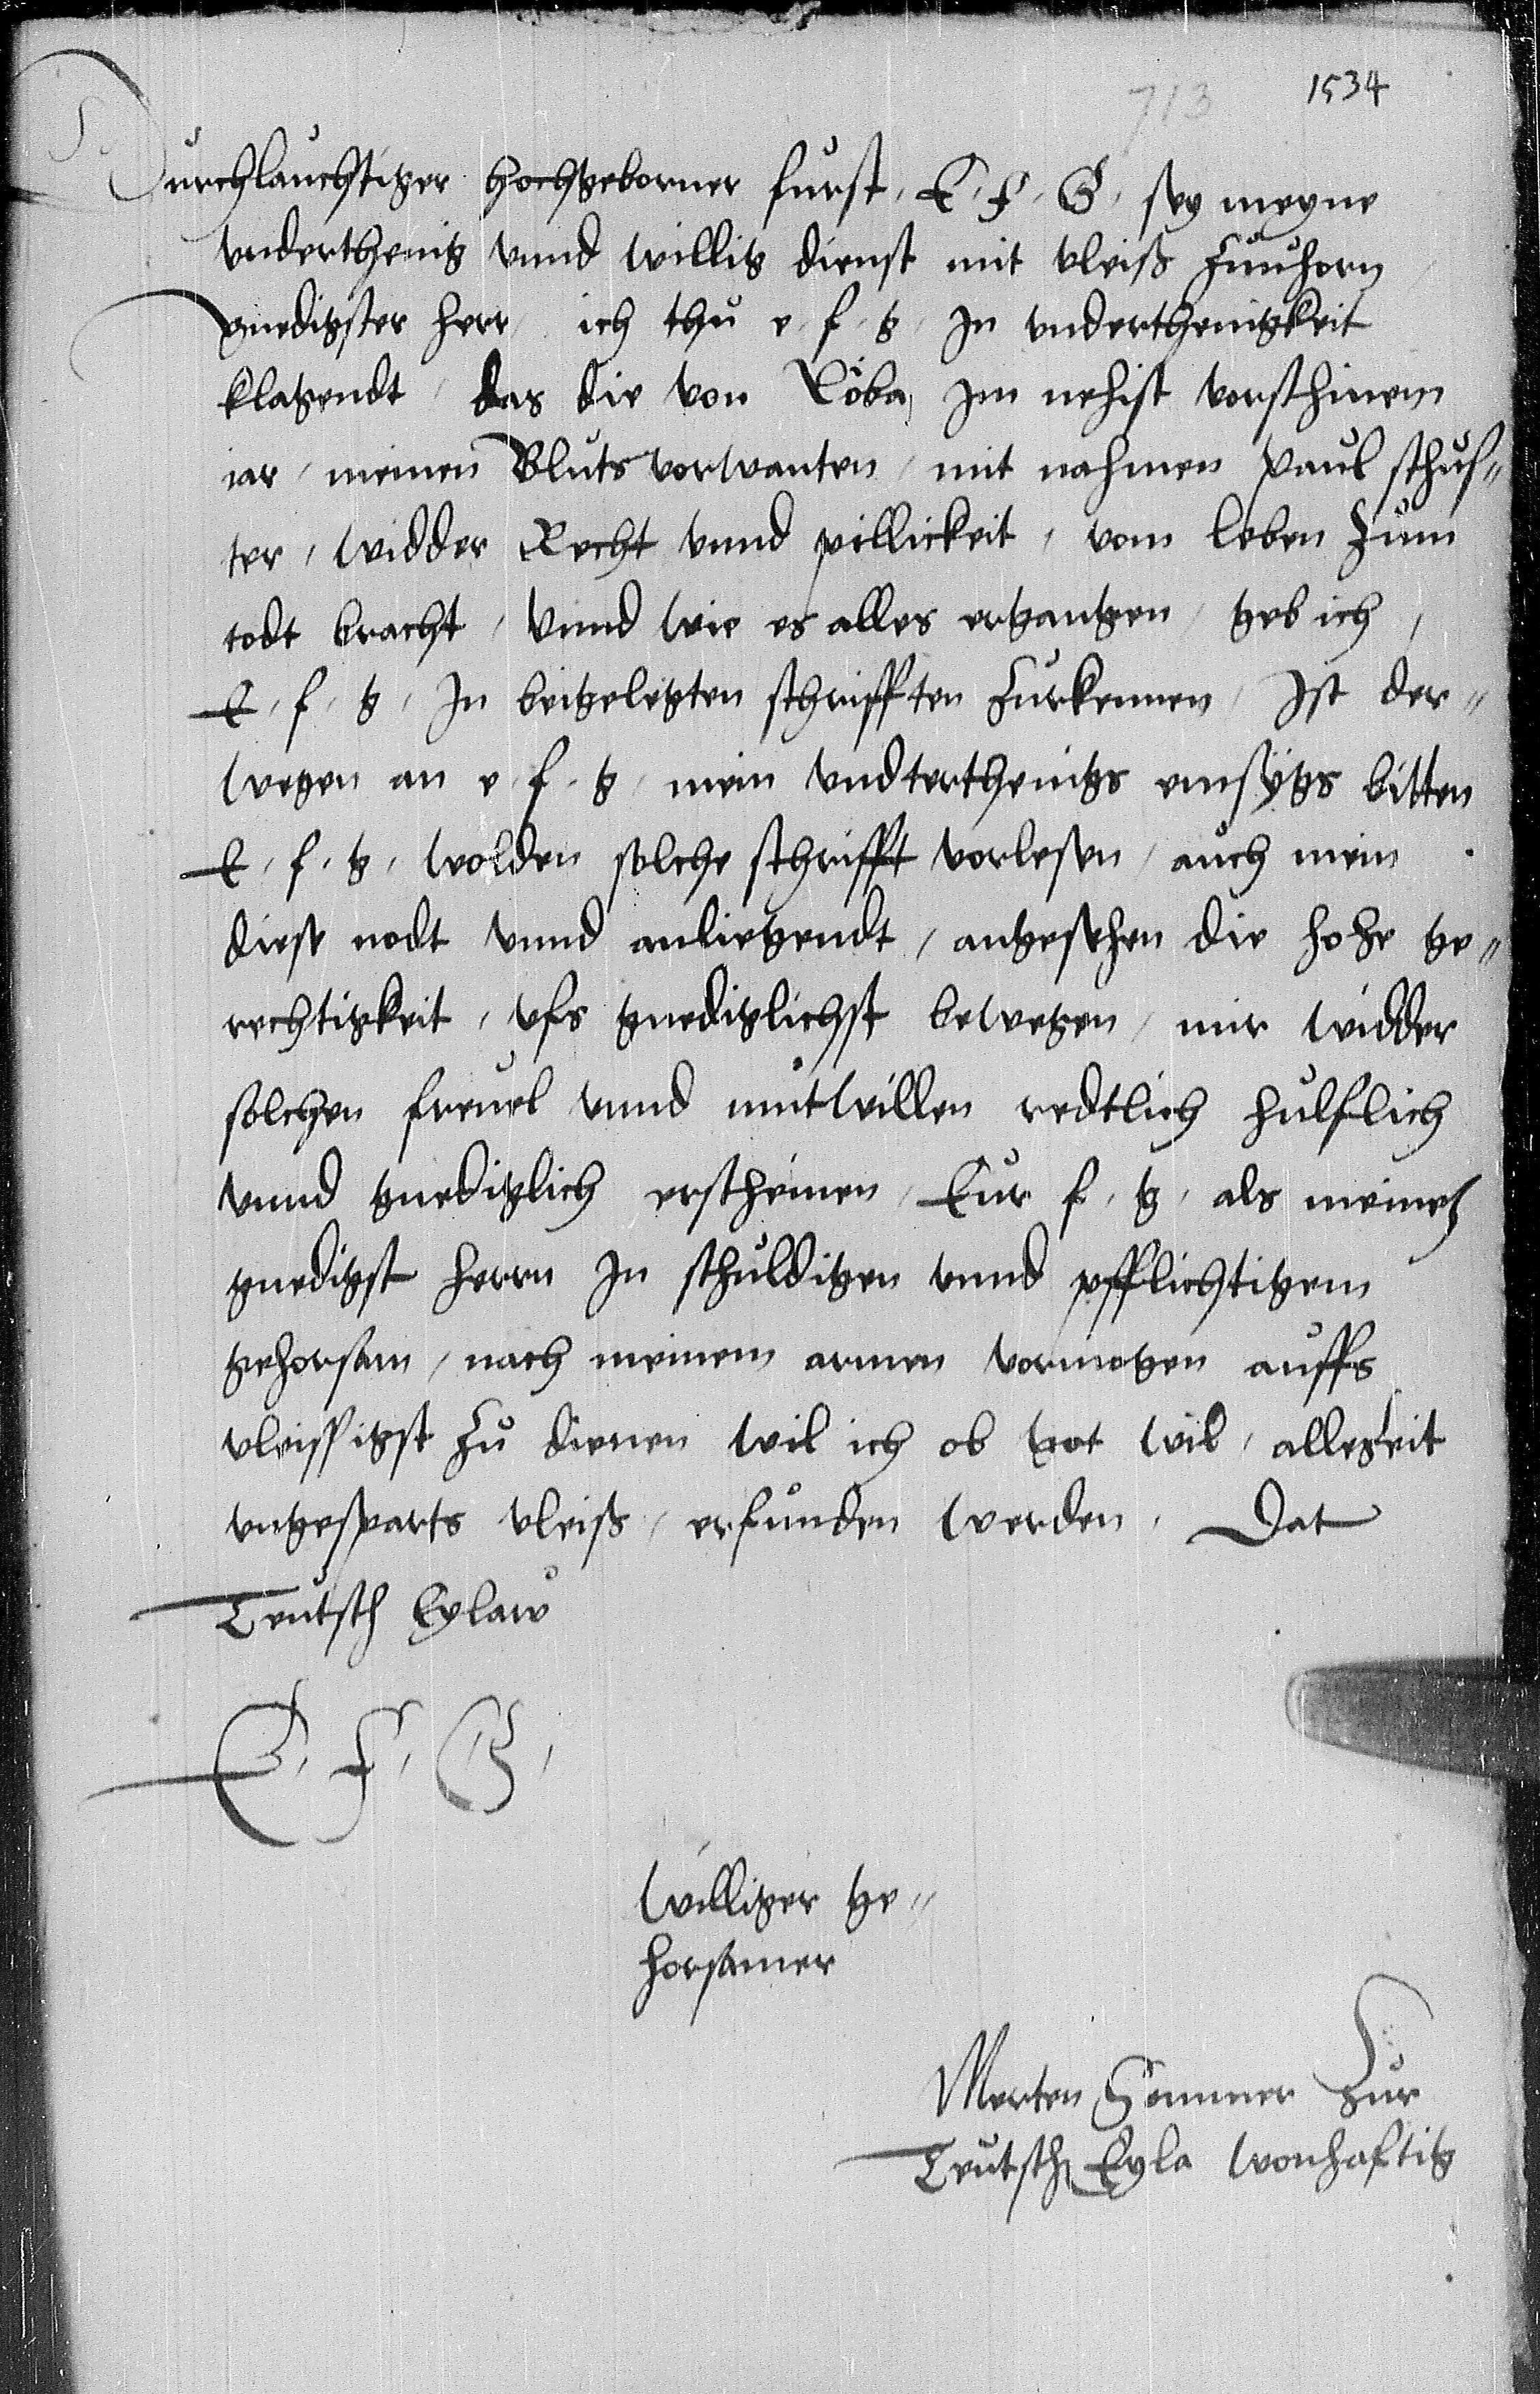 713 1534
Durchlauchtiger hochgeborner furst, E. F. G. sey meyne
underthenig unnd willig dienst mit vleiß zuuhorn
gnedigster herr, ich thu e. f. g. In underthenigkeit
klagendt, das die von Löba, im nehist vorschinem
iar, meinen Bluts vorwanten, mit nahmen Paul schus=
ter, widder Recht unnd pillickeit, vom leben zum
todt bracht, Unnd wie es alles ergangen, geb ich,
E. f. g. In beigelegten schrifften zurkennen, Ist der=
wegen an e. f. g. mein undterthenigs emsygs bitten
E. f. g. wolden solche schrifft vorlesen, auch mein
diese nodt unnd anliegendt, angesehen die hohe ge=
rechtigkeit, ufs gnediglichst bewegen, mir widder
solchen freuel unnd mutwillen redtlich hulflich
unnd gnediglich erscheinen, Eur f. g. als meines
gnedigst herrn In schuldigen unnd pfflichtigem
gehorsam, nach meinem armen vormogen auffs
vleissigst zu dienen wil ich ob got wil, allezeit
ungesparts vleiß, erfunden werden. Dat
Teutsch Eylaw
E. F. G.
williger ge=
horsamer
Merten Sommer zur
Teutsch Eyla wonhaftig